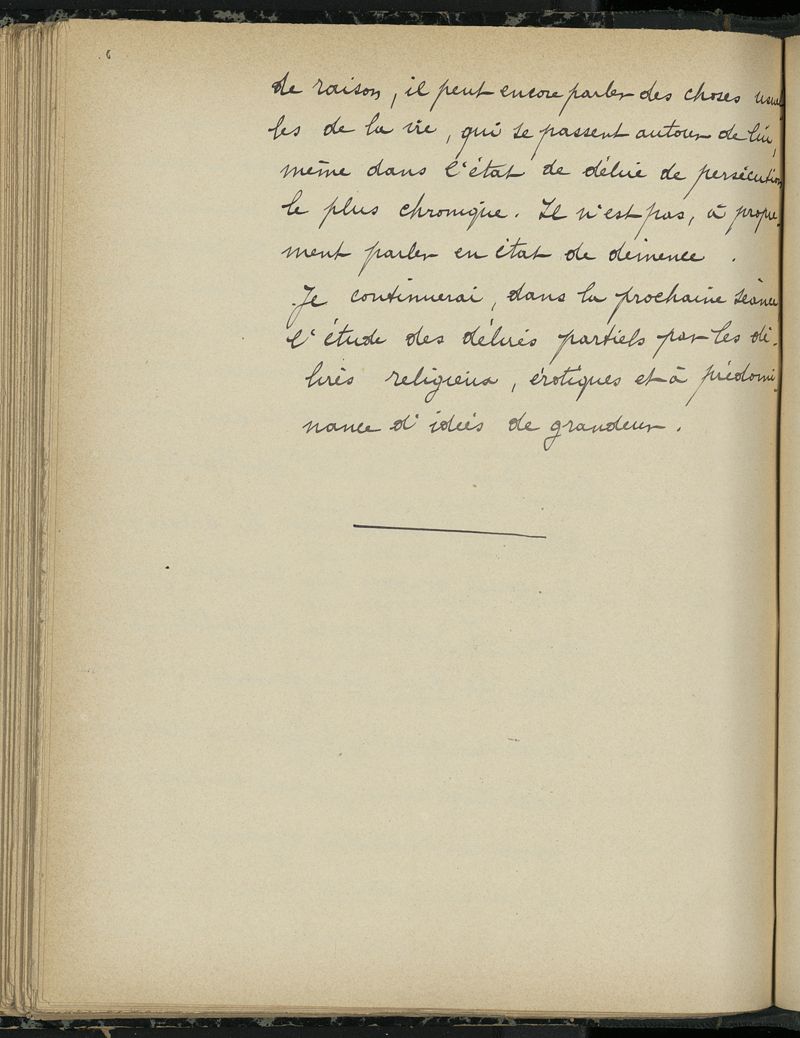 de raison, il peut encore parler des choses usuel
les de la vie, qui se passent autour de lui,
même dans l'état de délire de persécution
le plus chronique. Il n'est pas, à propre-
ment parler en état de démence.
Je continuerai, dans la prochaine séance
l'étude des délires partiels par les dé-
lires religieux, érotiques et à prédomi-
nance d'idées de grandeur.